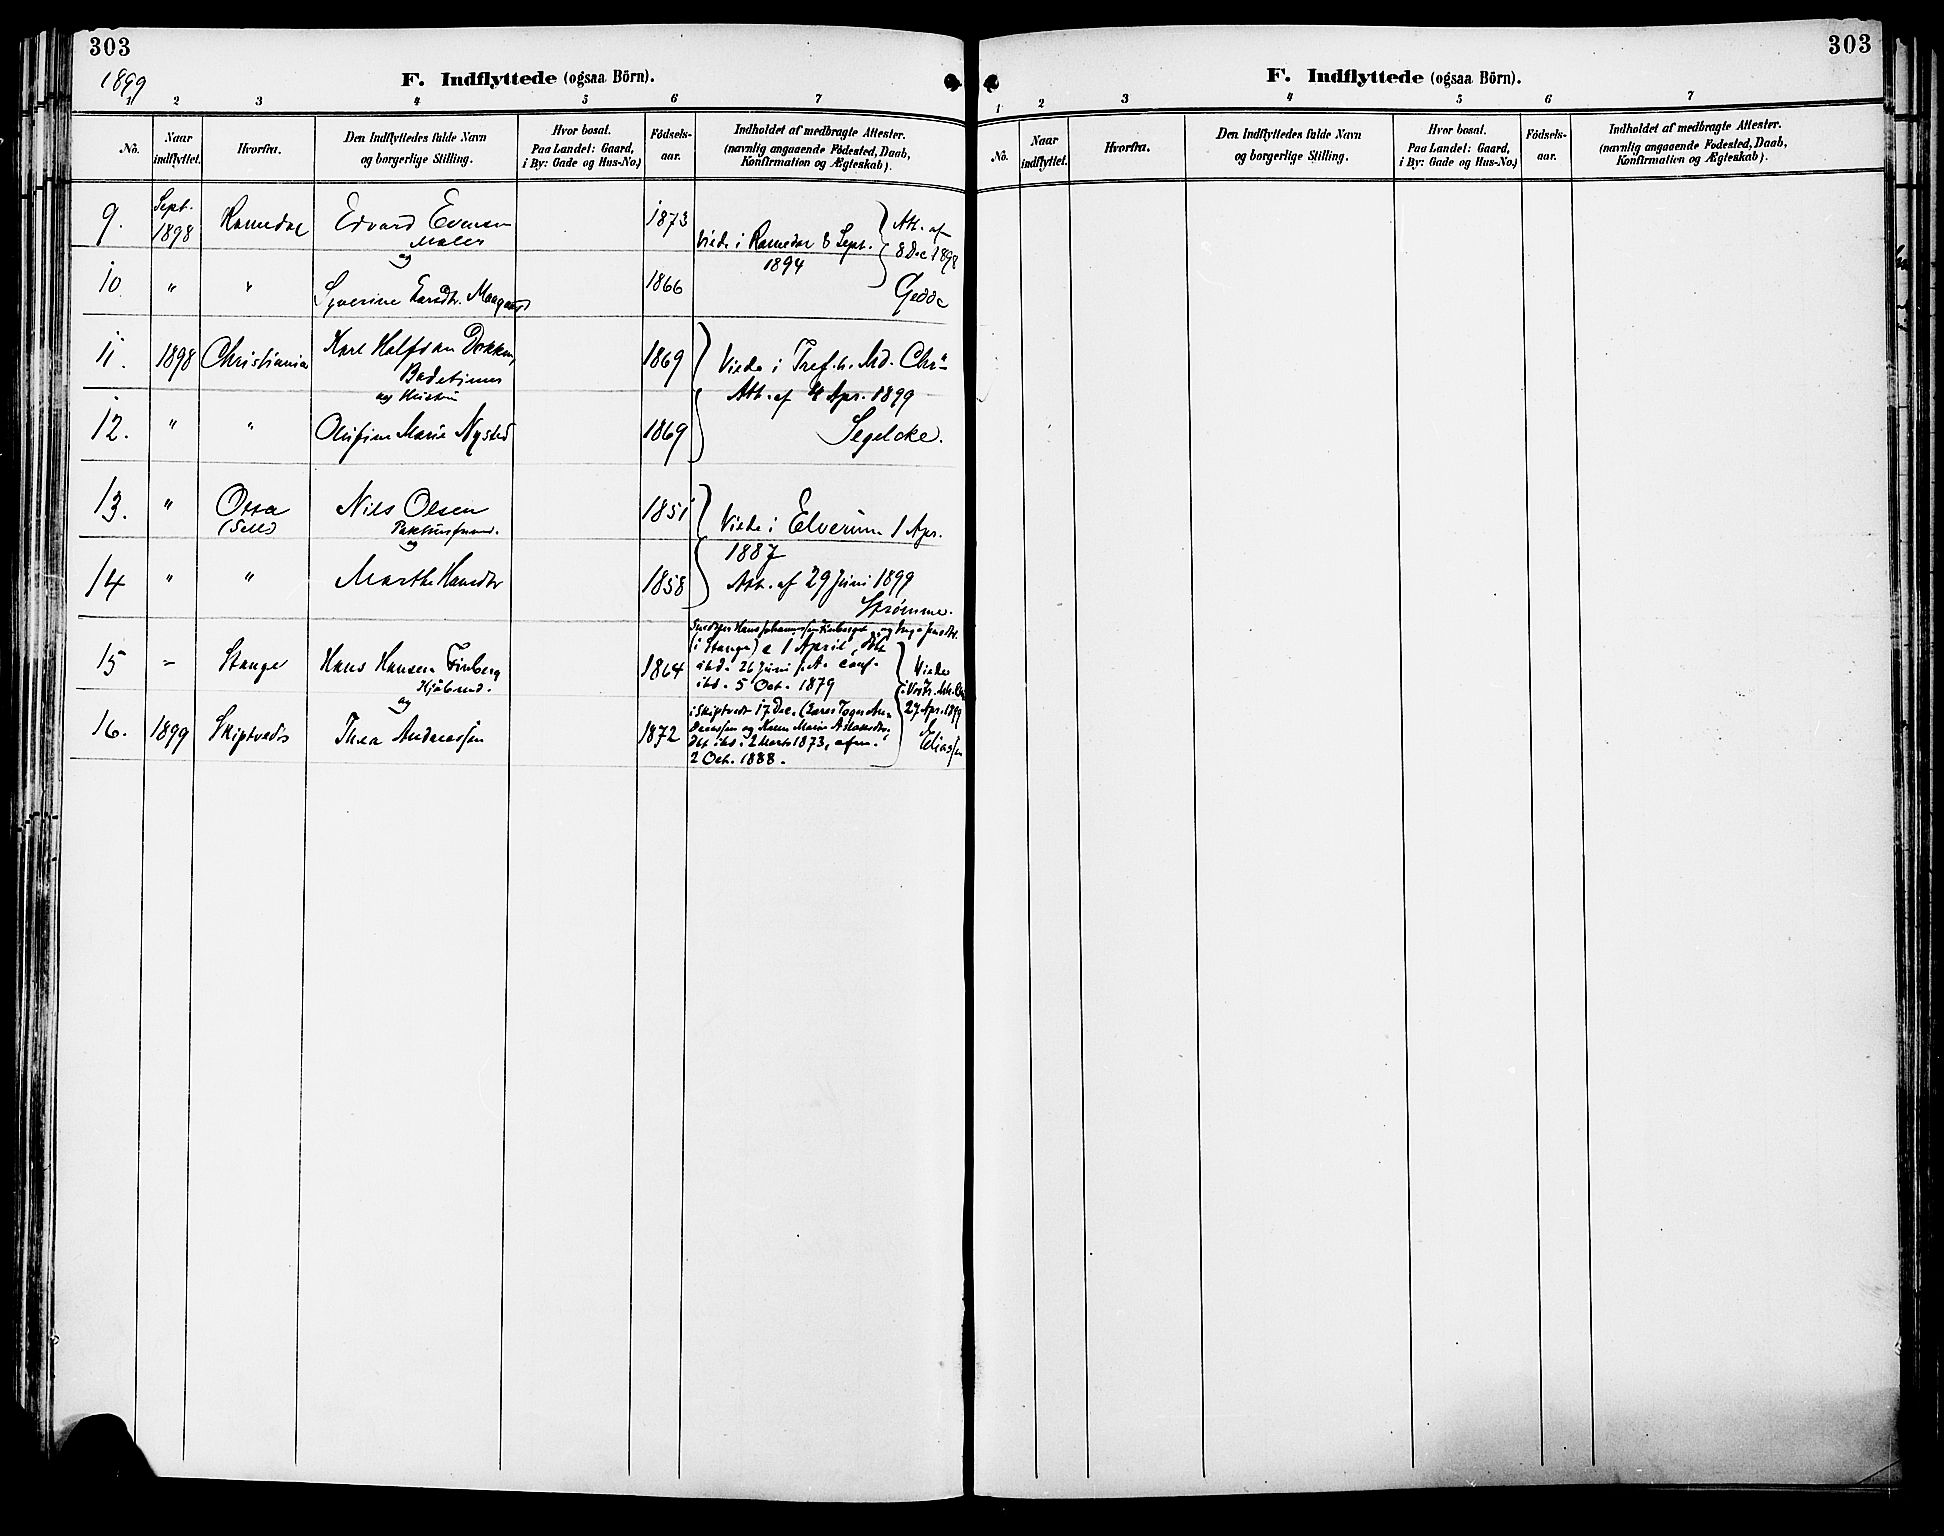 303
1899
F. Indflyttede (ogsaa Börn).
1 2 3 4 5 6 7
No.
Naar indflyttet.
Hvorfra.
Den Indflyttedes fulde Navn og borgerlige Stilling.
Hvor bosat. Paa Landet: Gaard, i By: Gade og Hus-No.)
Födsels-aar.
Indholdet af medbragte Attester. (navnlig angaaende Födested, Daab, Konfirmation og Ægteskab).
9. Sept. 1898 Edvard Evensen 1873
Maler
og
Viede i 8 Sept. 1894
Att. af 8 Dec 1898
Gedde
10 " " Syverine 1866
11. 1898 Christiania Karl Halfdan Dokken, 1869
og Hustru
Viede i Tref. k. Md. Chr.a
Att. af 4 Apr. 1899
Segelcke.
12. " " Olufine Marie Nysted 1869
13. " Otta Nils Olsen 1851
(Sell) Pakhusformand.
og
Viede i Elverum 1 Apr.
1887
Att. af 29 Juni 1899
Strømme.
14 " " Marthe Hansdtr 1858
15 " Stange Hans Hansen Finberg 1864
og
(i Stange) e 1 April, Döbt
ibd. 26 Juni s. A. conf.
ibd. 5 Oct. 1879
Viede
27 Apr. 1899
Eliassen
16. 1899 Skiptvedt Thea Andreassen 1872
i Skiptvedt 17 Dec.
og Karen Marie
Döbt ibd. 2 Marts 1873,
2 Oct. 1888.
303
F. Indflyttede (ogsaa Börn).
1 2 3 4 5 6 7
No.
Naar indflyttet.
Hvorfra.
Den Indflyttedes fulde Navn og borgerlige Stilling.
Hvor bosat. Paa Landet: Gaard, i By: Gade og Hus-No.)
Födsels-aar.
Indholdet af medbragte Attester. (navnlig angaaende Födested, Daab, Konfirmation og Ægteskab).